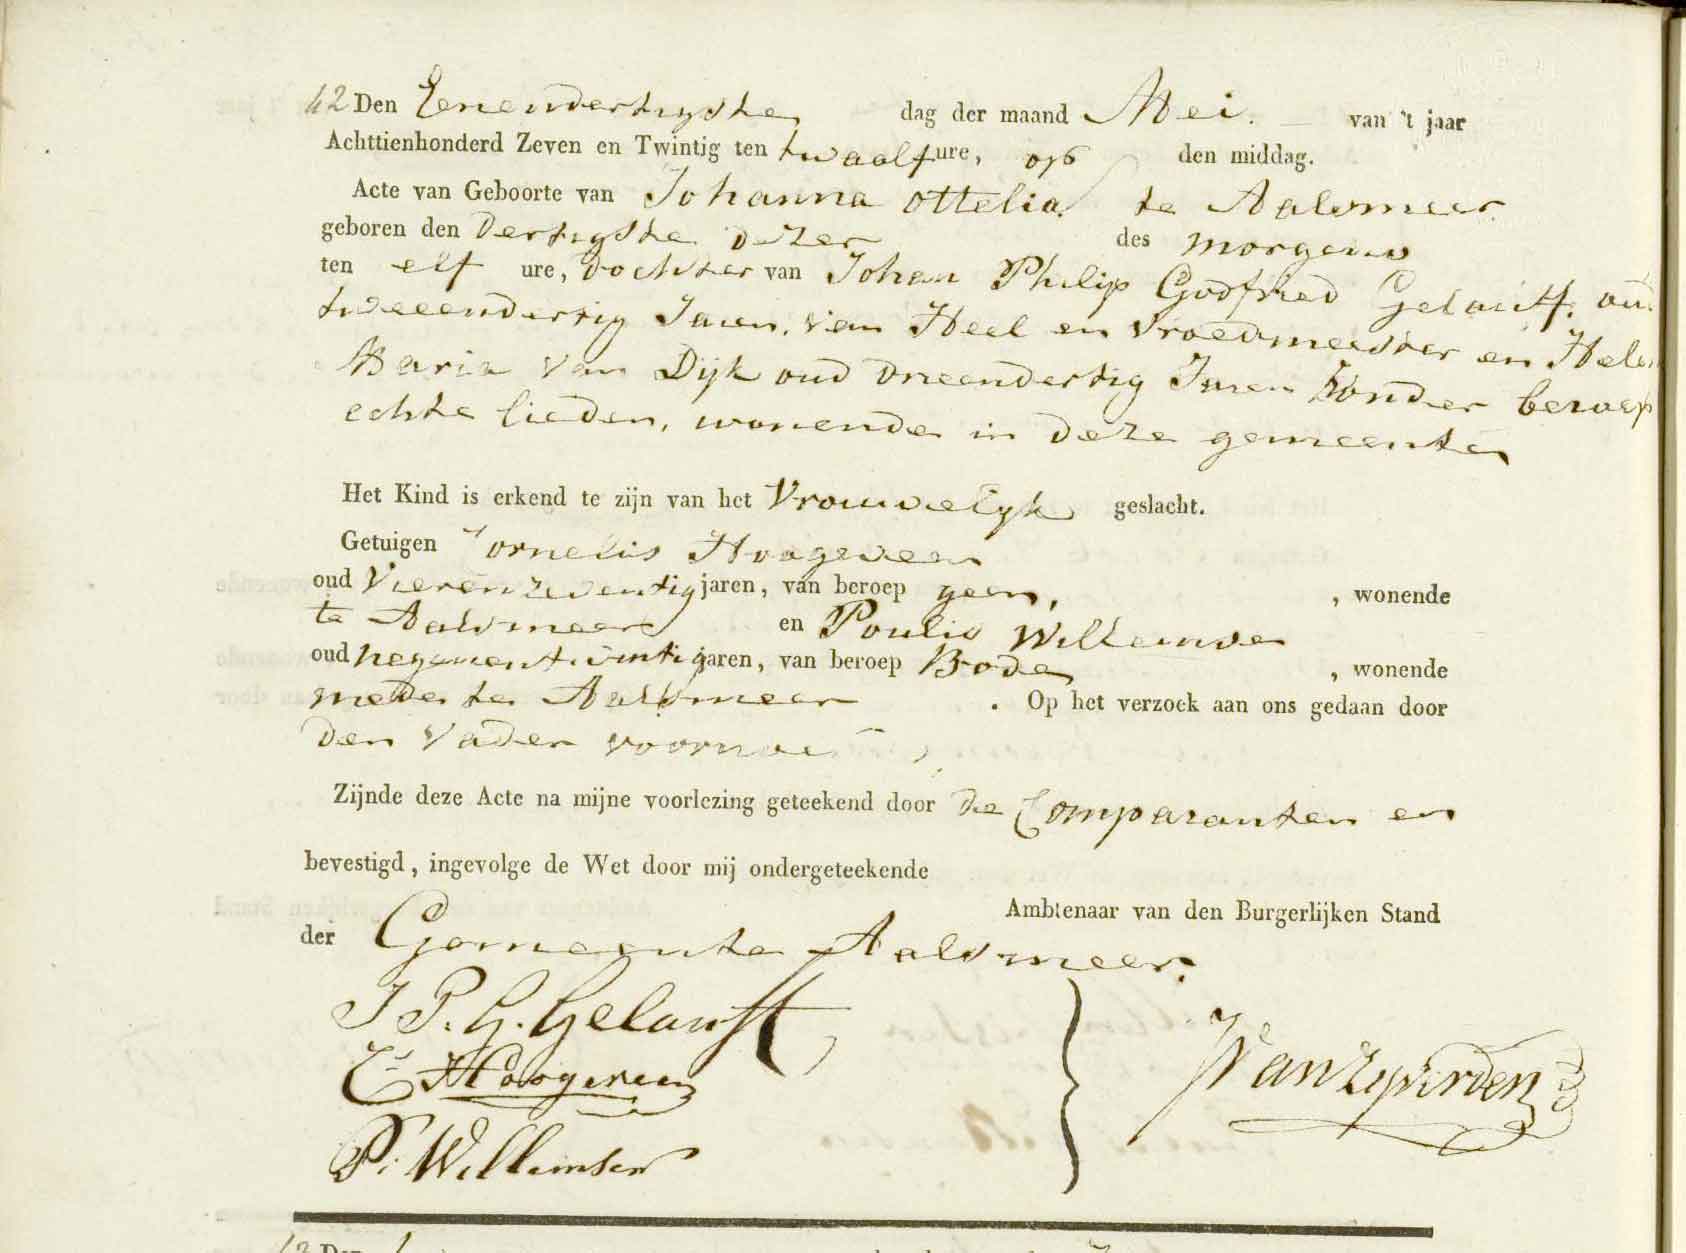 42 Den Eenendertigste dag der maand Mei. van 't jaar
Achttienhonderd Zeven en Twintig ten twaalf ure, op den middag.
Acte van Geboorte van Johanna Ottelia. te Aalsmeer
geboren den dertigste dezer des morgens
ten elf ure, dochter van Johan Philip Godfried Gelauff. oud
tweeendertig Jaren. van Heel en vroedmeester en Hele
Maria van Dijk oud drieendertig Jaren zonder beroep
echte lieden, wonende in deze gemeente
Het Kind is erkend te zijn van het Vrouwelijk geslacht.
Getuigen Cornelis Hoogeveen
oud Vierenzeventig jaren, van beroep geen, , wonende
te Aalsmeer en Poulis Willemse
oud negenentwintig jaren, van beroep Bode , wonende
mede te Aalsmeer . Op het verzoek aan ons gedaan door
den Vader
Zijnde deze Acte na mijne voorlezing geteekend door de Comparanten en
bevestigd, ingevolge de Wet door mij ondergeteekende
Ambtenaar van den Burgerlijken Stand
der Gemeente Aalsmeer.
J P. G. Gelauff
C Hoogeveen
P. Willemsen